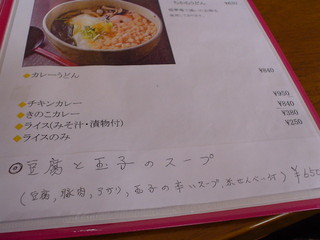 ◆カレーうどん ¥840
◆チキンカレー ¥950
◆きのこカレー ¥840
◆ライス(みそ汁・漬物付) ¥380
◆ライスのみ ¥250
◎豆腐と玉子のスープ
(豆腐,豚肉,アサリ,玉子の辛いスープ, ) ¥650